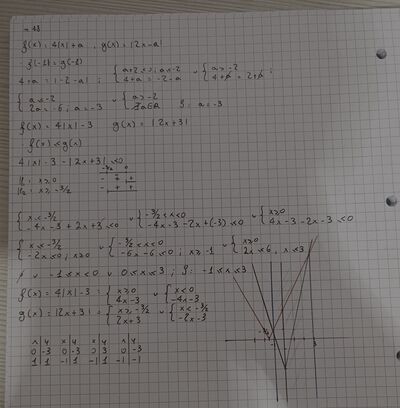 n 48
f(x) = 4|x|+a , g(x) = |2x-a|
f(-1) = g(-1)
4+a = |-2-a| ; { a+2<0; a<-2 { 4+a = -2-a ∪ { a>-2 { 4+a = 2+a ;
{ a<-2 { 2a=-6, a=-3 ∪ { a>-2 { ∄a∈R S: a=-3
f(x) = 4|x|-3 g(x) = |2x+3|
f(x) ≤ g(x)
4|x|-3-|2x+3| ≤0
-3/2 0
N1: x≥0 - - +
N2: x≥-3/2 - + +
{ x<-3/2 { -4x-3+2x+3≤0 ∪ { -3/2<x<0 { -4x-3-2x+(-3)≤0 ∪ { x≥0 { 4x-3-2x-3≤0
{ x<-3/2 { -2x≤0, x≥0 ∪ { -3/2<x<0 { -6x-6≤0, x≥-1 ∪ { x≥0 { 2x≤6, x≤3
∅ ∪ -1≤x<0 ∪ 0≤x≤3 ; S: -1≤x≤3
f(x) = 4|x|-3 : { x≥0 { 4x-3 ∪ { x<0 { -4x-3
g(x) = |2x+3| = { x≥-3/2 { 2x+3 ∪ { x<-3/2 { -2x-3
x y x y x y x y
0 -3 0 -3 0 3 0 -3
1 1 -1 1 -1 1 -1 -1